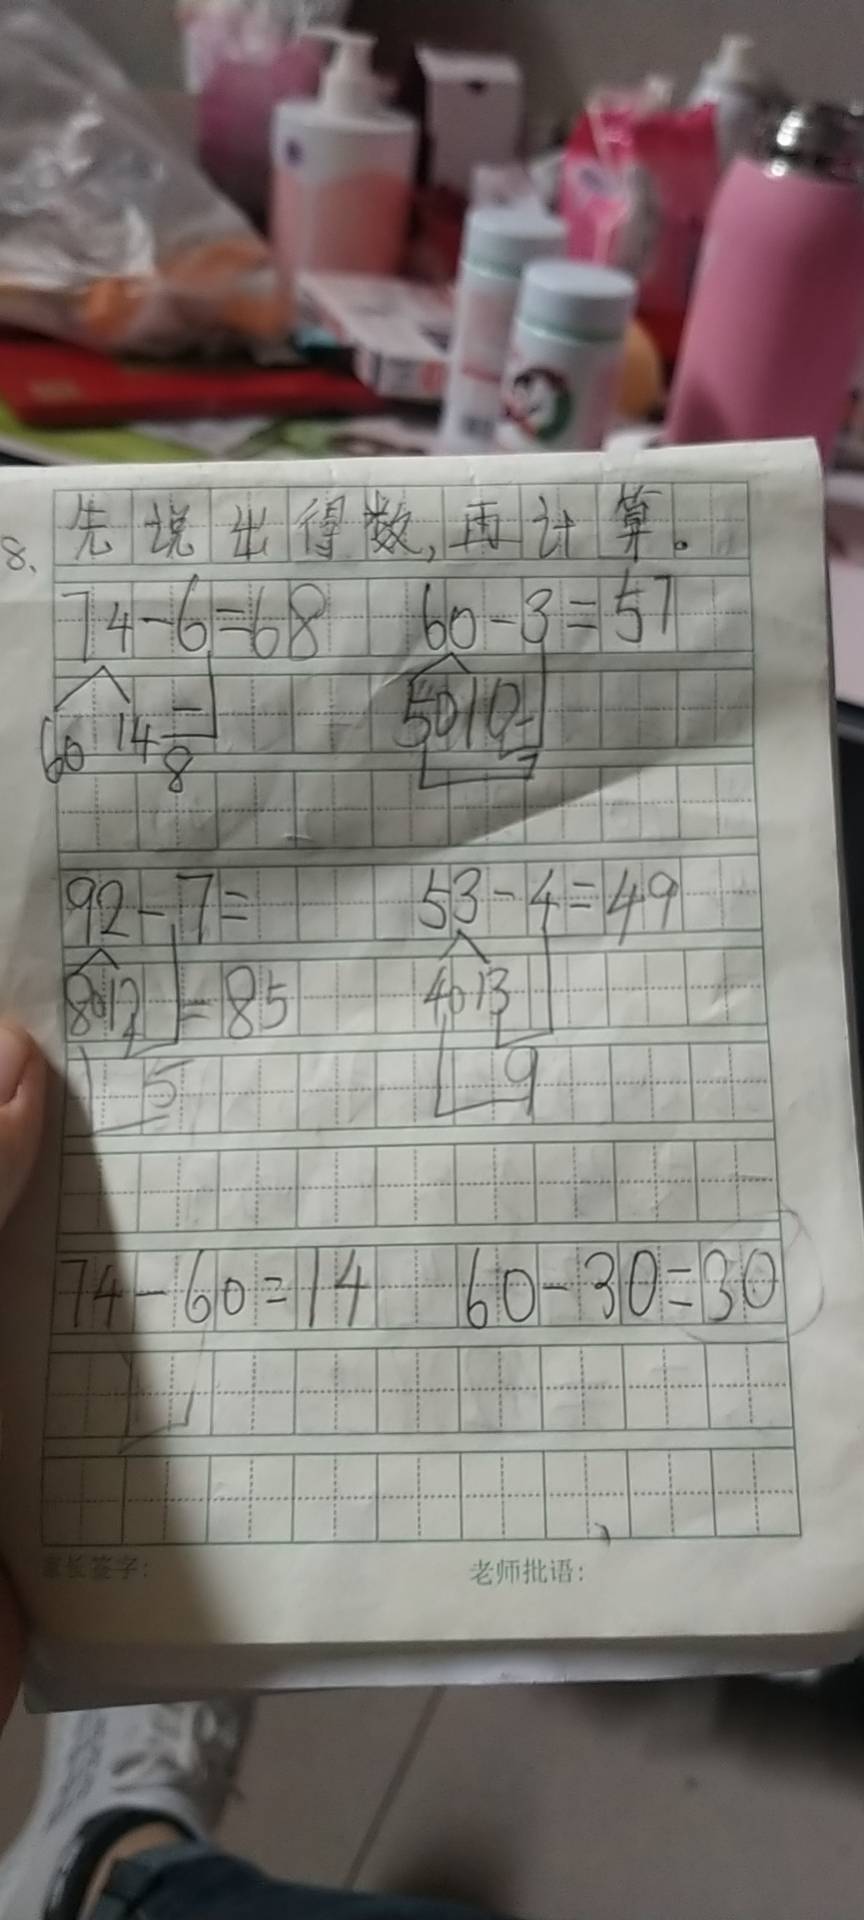 8、先说出得数,再计算。
74-6=68 60-3=57
60 14 5010
8 7
92-7= 53-4=49
8012 =85 4013
5 9
74-60=14 60-30=30
家长签字: 老师批语: